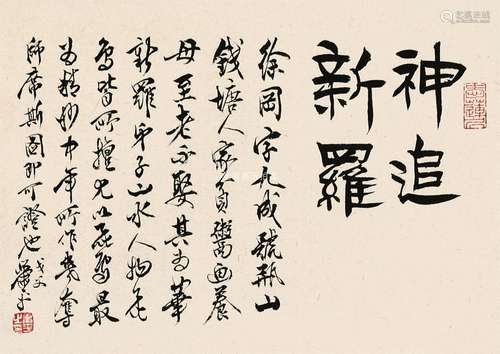 神追
新羅
徐岡字九成號瓶山
錢塘人家貧鬻画養
母至老不娶其為華
新羅弟子山水人物花
鳥皆所擅尤以花鳥最
為精妙中年所作幾奪
師席斯圖即可證也